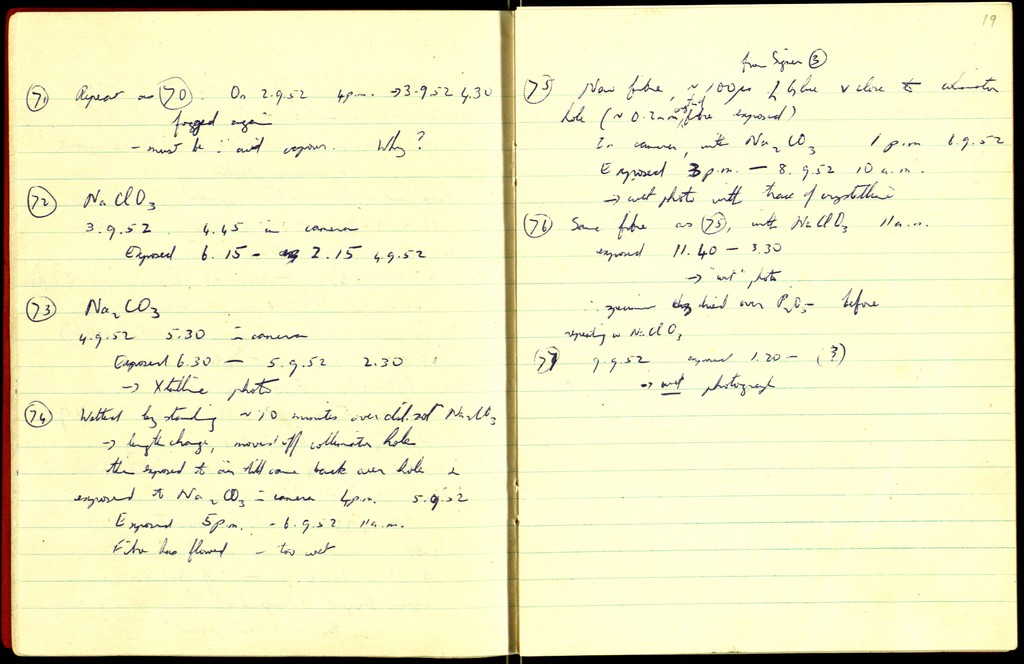 (71) Repeat as (70). On 2.9.52 4p.m. → 3.9.52 4.30
fogged again
- must be acid vapour. Why?
(72) NaClO3
3.9.52 4.45 in camera
Exposed 6.15 - 2.15 4.9.52
(73) Na2CO3
4.9.52 5.30 in camera
Exposed 6.30 — 5.9.52 2.30
→ Xtalline photo
(74) Wetted by standing ~10 minutes over dil. sol
→ length change, moved off collimator hole
then exposed to air till came back over hole &
exposed to Na2CO3 in camera 4p.m. 5.9.52
Exposed 5p.m. - 6.9.52 11a.m.
Fibre has flowed - too wet
19
from Signer (3)
(75) New fibre, ~100μ v close to collimator
hole (~0.2mm of fibre exposed)
In camera, with Na2CO3 1p.m 6.9.52
Exposed 3p.m. — 8.9.52 10a.m.
→ wet photo with trace of crystalline
(76) Same fibre as (75), with NaClO3 11a.m.
exposed 11.40 — 3.30
→ "wet" photo
∴ specimen dried over P2O5 before
repeating in NaClO3
(77) 9.9.52 exposed 1.20 - (?)
→ wet photograph